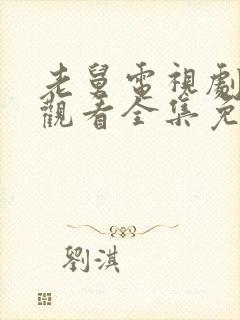 老舅電視劇
觀看全集免
劉淇